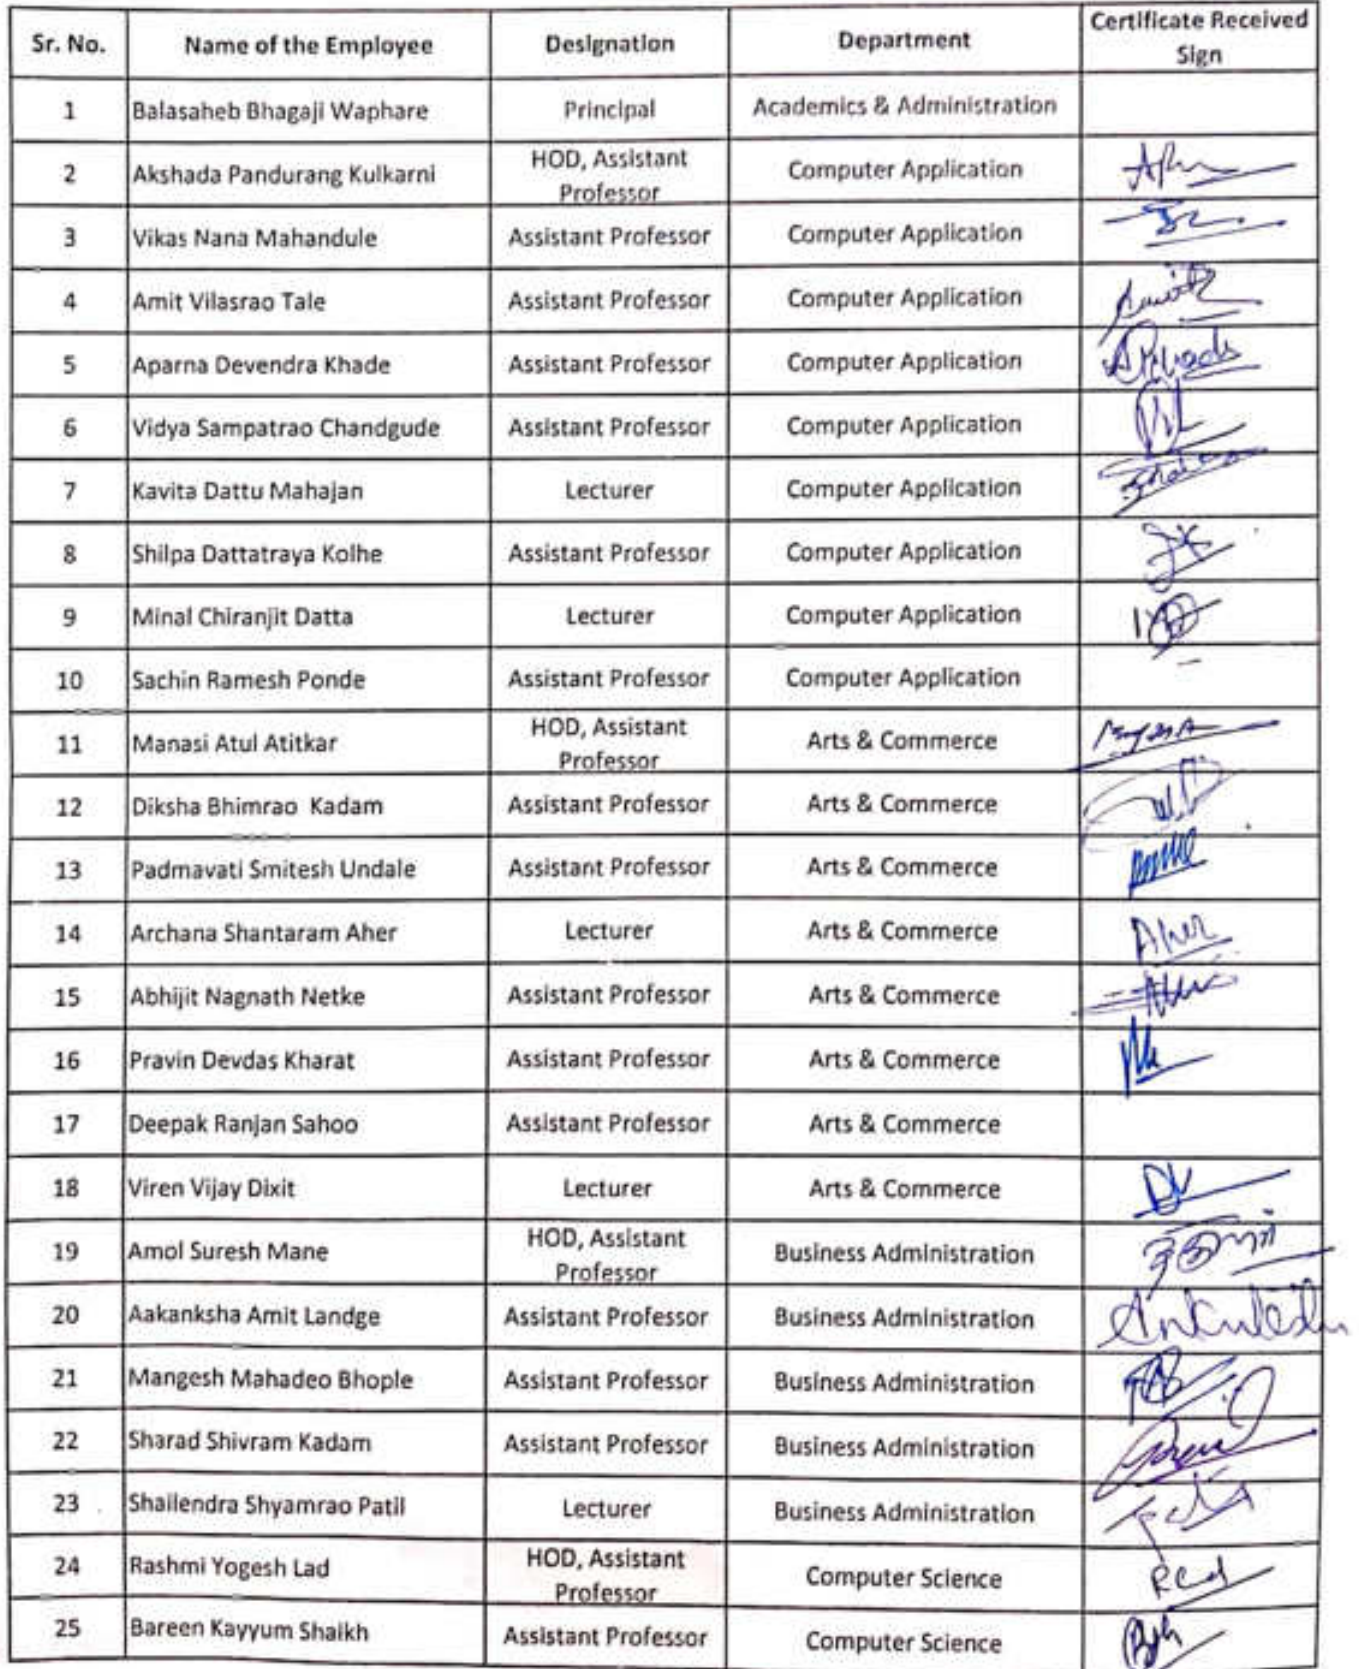 Sr. No. Name of the Employee Designation Department Certificate Received Sign
1 Balasaheb Bhagaji Waphare Principal Academics & Administration
2 Akshada Pandurang Kulkarni HOD, Assistant Professor Computer Application
3 Vikas Nana Mahandule Assistant Professor Computer Application
4 Amit Vilasrao Tale Assistant Professor Computer Application
5 Aparna Devendra Khade Assistant Professor Computer Application
6 Vidya Sampatrao Chandgude Assistant Professor Computer Application
7 Kavita Dattu Mahajan Lecturer Computer Application
8 Shilpa Dattatraya Kolhe Assistant Professor Computer Application
9 Minal Chiranjit Datta Lecturer Computer Application
10 Sachin Ramesh Ponde Assistant Professor Computer Application
11 Manasi Atul Atitkar HOD, Assistant Professor Arts & Commerce
12 Diksha Bhimrao Kadam Assistant Professor Arts & Commerce
13 Padmavati Smitesh Undale Assistant Professor Arts & Commerce
14 Archana Shantaram Aher Lecturer Arts & Commerce Aher
15 Abhijit Nagnath Netke Assistant Professor Arts & Commerce
16 Pravin Devdas Kharat Assistant Professor Arts & Commerce
17 Deepak Ranjan Sahoo Assistant Professor Arts & Commerce
18 Viren Vijay Dixit Lecturer Arts & Commerce
19 Amol Suresh Mane HOD, Assistant Professor Business Administration
20 Aakanksha Amit Landge Assistant Professor Business Administration
21 Mangesh Mahadeo Bhople Assistant Professor Business Administration
22 Sharad Shivram Kadam Assistant Professor Business Administration
23 Shailendra Shyamrao Patil Lecturer Business Administration
24 Rashmi Yogesh Lad HOD, Assistant Professor Computer Science
25 Bareen Kayyum Shaikh Assistant Professor Computer Science